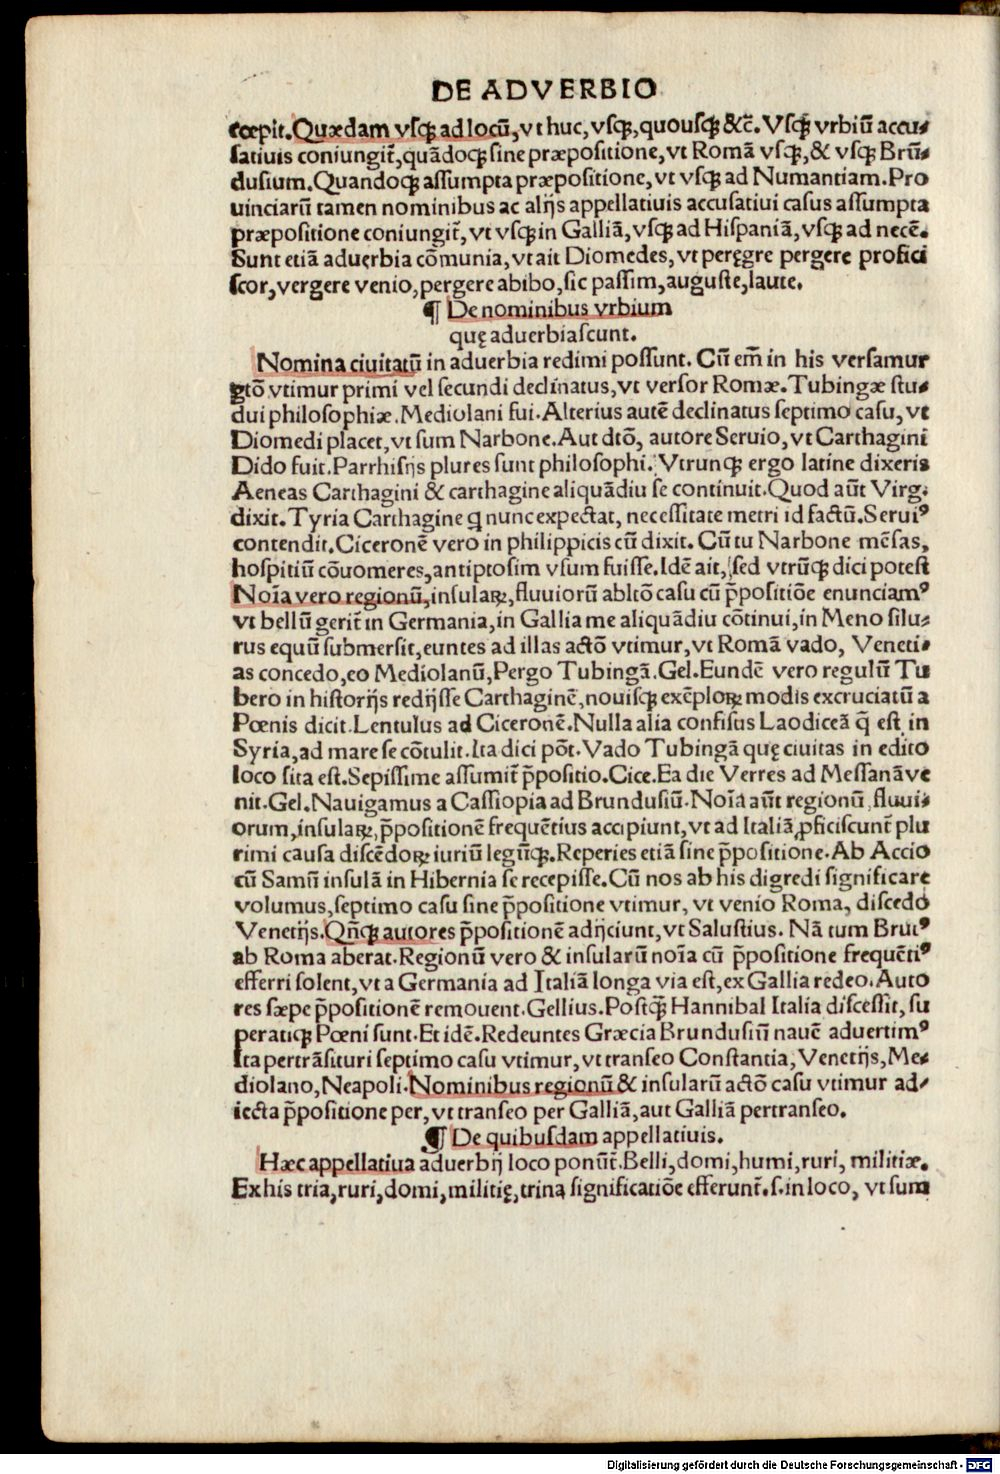 DE ADVERBIO
cœpit. Quædam vsqꝫ ad locū, vt huc, vsqꝫ, quousqꝫ &c̄. Vsqꝫ vrbiū accu-
satiuis coniungit̄, quādoqꝫ sine præpositione, vt Romā vsqꝫ, & vsqꝫ Brū-
dusium. Quandoqꝫ assumpta præpositione, vt vsqꝫ ad Numantiam. Pro
uinciarū tamen nominibus ac alijs appellatiuis accusatiui casus assumpta
præpositione coniungit̄, vt vsqꝫ in Galliā, vsqꝫ ad Hispaniā, vsqꝫ ad necē.
Sunt etiā aduerbia cōmunia, vt ait Diomedes, vt peręgre pergere profici
scor, vergere venio, pergere abibo, sic passim, auguste, laute.
¶ De nominibus vrbium
quę aduerbiascunt.
Nomina ciuitatū in aduerbia redimi possunt. Cū em̄ in his versamur
gtō vtimur primi vel secundi declinatus, vt versor Romæ. Tubingæ stu-
dui philosophiæ. Mediolani fui. Alterius autē declinatus septimo casu, vt
Diomedi placet, vt sum Narbone. Aut dtō, autore Seruio, vt Carthagini
Dido fuit. Parrhisijs plures sunt philosophi. Vtrunqꝫ ergo latine dixeris
Aeneas Carthagini & carthagine aliquādiu se continuit. Quod aūt Virg.
dixit. Tyria Carthagine q nunc expectat, necessitate metri id factū. Serui⁹
contendit. Ciceronē vero in philippicis cū dixit. Cū tu Narbone mēsas,
hospitiū cōuomeres, antiptosim vsum fuisse. Idē ait, sed vtrūqꝫ dici potest
Noīa vero regionū, insulaꝝ, fluuiorū abltō casu cū p̄positiōe enunciam⁹
vt bellū gerit̄ in Germania, in Gallia me aliquādiu cōtinui, in Meno silu-
rus equū submersit, euntes ad illas actō vtimur, vt Romā vado, Veneti-
as concedo, eo Mediolanū, Pergo Tubingā. Gel. Eundē vero regulū Tu
bero in historijs redijsse Carthaginē, nouisqꝫ exēploꝝ modis excruciatū a
Pœnis dicit. Lentulus ad Ciceronē. Nulla alia confisus Laodiceā q̄ est in
Syria, ad mare se cōtulit. Ita dici pōt. Vado Tubingā quę ciuitas in edito
loco sita est. Sepissime assumit̄ p̄positio. Cice. Ea die Verres ad Messanā ve
nit. Gel. Nauigamus a Cassiopia ad Brundusiū. Noīa aūt regionū, fluui-
orum, insulaꝝ, p̄positionē frequētius accipiunt, vt ad Italiā ꝓficiscunt̄ plu
rimi causa discēdoꝝ iuriū legūqꝫ. Reperies etiā sine p̄positione. Ab Accio
cū Samū insulā in Hibernia se recepisse. Cū nos ab his digredi significare
volumus, septimo casu sine p̄positione vtimur, vt venio Roma, discedo
Venetijs. Qn̄qꝫ autores p̄positionē adijciunt, vt Salustius. Nā tum Brut⁹
ab Roma aberat. Regionū vero & insularū noīa cū p̄positione frequēti⁹
efferri solent, vt a Germania ad Italiā longa via est, ex Gallia redeo. Auto
res sæpe p̄positionē remouent. Gellius. Postq̄ꝫ Hannibal Italia discessit, su
peratiqꝫ Pœni sunt. Et idē. Redeuntes Græcia Brundusiū nauē aduertim⁹
Ita pertrāsituri septimo casu vtimur, vt transeo Constantia, Venetijs, Me-
diolano, Neapoli. Nominibus regionū & insularū actō casu vtimur ad-
iecta p̄positione per, vt transeo per Galliā, aut Galliā pertranseo.
¶ De quibusdam appellatiuis.
Hæc appellatiua aduerbij loco ponūt̄. Belli, domi, humi, ruri, militiæ.
Ex his tria, ruri, domi, militię, trina significatiōe efferunt̄. s. in loco, vt sum
Digitalisierung gefördert durch die Deutsche Forschungsgemeinschaft - DFG